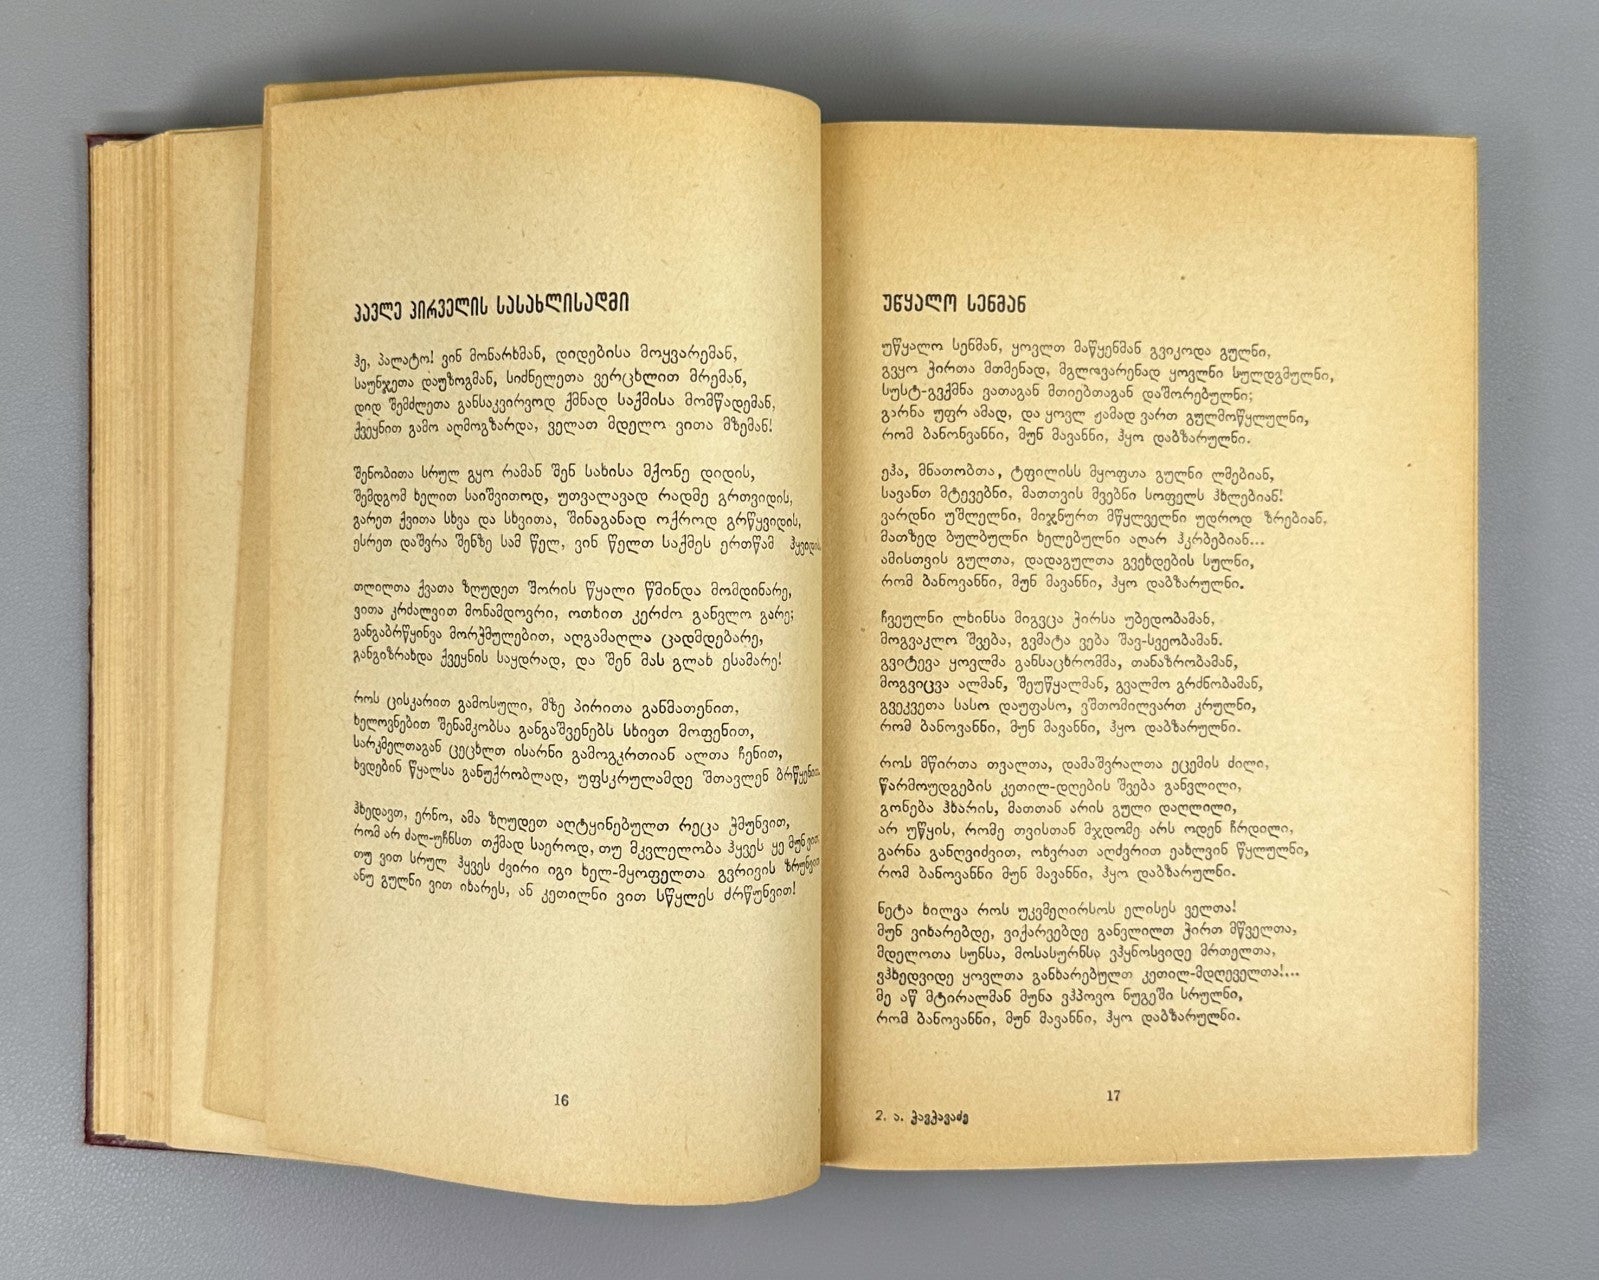 პავლე პირველის სასახლისადმი
ჰე, პალატო! ვინ მონარხმან, დიდებისა მოყვარემან,
საუნჯეთა დაუზოგმან, სიძნელეთა ვერცხლით მრემან,
დიდ შემძლეთა განსაკვირვოდ ქმნად საქმისა მომწადემან,
ქვეყნით გამო აღმოგზარდა, ველათ მდელო ვითა მზემან!
შენობითა სრულ გყო რამან შენ სახისა მქონე დიდის,
შემდგომ ხელით საიშვითოდ, უთვალავად რადმე გრთვიდის,
გარეთ ქვითა სხვა და სხვითა, შინაგანად ოქროდ გრწყვიდის,
ესრეთ დაშვრა შენზე სამ წელ, ვინ წელთ საქმეს ერთწამ ჰყვიდის
თლილთა ქვათა ზღუდეთ შორის წყალი წმინდა მომდინარე,
ვითა კრძალვით მონამდოვრი, ოთხით კერძო განვლო გარე;
განგაბრწყინვა მორჭმულებით, აღგამაღლა ცადმდებარე,
განგიზრახდა ქვეყნის საყდრად, და შენ მას გლახ ესამარე!
როს ცისკარით გამოსული, მზე პირითა განმათენით,
ხელოვნებით შენამკობსა განგაშვენებს სხივთ მოფენით,
სარკმელთაგან ცეცხლთ ისარნი გამოგკრთიან ალთა ჩენით,
ხვდებინ წყალსა განუქრობლად, უფსკრულამდე შთავლენ ბრწყენით.
ჰხედავთ, ერნო, ამა ზღუდეთ აღტყინებულთ რეცა ჭმუნვით,
რომ არ ძალ-უჩნსთ თქმად საეროდ, თუ მკვლელობა ჰყვეს ყე მუნ ვით
თუ ვით სრულ ჰყვეს ძვირი იგი ხელ-მყოფელთა გვრივის ზრუნვით
ანუ გულნი ვით იხარეს, ან კეთილნი ვით სწყლეს ძრწუნვით!
16
უწყალო სენმან
უწყალო სენმან, ყოვლთ მაწყენმან გვიკოდა გულნი,
გვყო ჭირთა მთმენად, მგლოვარენად ყოვლნი სულდგმულნი,
სუსტ-გვქმნა ვათაგან მთიებთაგან დაშორებულნი;
გარნა უფრ ამად, და ყოვლ ჟამად ვართ გულმოწყლულნი,
რომ ბანონვანნი, მუნ მავანნი, ჰყო დაბზარულნი.
ეჰა, მნათობთა, ტფილისს მყოფთა გულნი ლმებიან,
სავანთ მტევებნი, მათთვის მვებნი სოფელს ჰხლებიან!
ვარდნი უშლელნი, მიჯნურთ მწყლველნი უდროდ ზრებიან,
მათზედ ბულბულნი ხელებულნი აღარ ჰკრბებიან...
ამისთვის გულთა, დადაგულთა გვეხდების სულნი,
რომ ბანოვანნი, მუნ მავანნი, ჰყო დაბზარულნი.
ჩვეულნი ლხინსა მიგვცა ჭირსა უბედობამან,
მოგვაკლო შვება, გვმატა ვება შავ-სვეობამან.
გვიტევა ყოვლმა განსაცხრომმა, თანაზრობამან,
მოგვიცვა ალმან, შეუწყალმან, გვალმო გრძნობამან,
გვეკვეთა სასო დაუფასო, ვშთომილვართ კრულნი,
რომ ბანოვანნი, მუნ მავანნი, ჰყო დაბზარულნი.
როს მწირთა თვალთა, დამაშვრალთა ეცემის ძილი,
წარმოუდგების კეთილ-დღების შვება განვლილი,
გონება ჰხარის, მათთან არის გული დაღლილი,
არ უწყის, რომე თვისთან მჯდომე არს ოდენ ჩრდილი,
გარნა განღვიძვით, ოხვრათ აღძვრით ეახლვინ წყლულნი,
რომ ბანოვანნი მუნ მავანნი, ჰყო დაბზარულნი.
ნეტა ხილვა როს უკვმეღირსოს ელისეს ველთა!
მუნ ვიხარებდე, ვიქარვებდე განვლილთ ჭირთ მწველთა,
მდელოთა სუნსა, მოსასურნსა ვჰყნოსვიდე მრთელთა,
ვჰხედვიდე ყოვლთა განხარებულთ კეთილ-მდღეველთა!...
მე აწ მტირალმან მუნა ვჰპოვო ნუგეში სრულნი,
რომ ბანოვანნი, მუნ მავანნი, ჰყო დაბზარულნი.
17
2. ა. ჭავჭავაძე